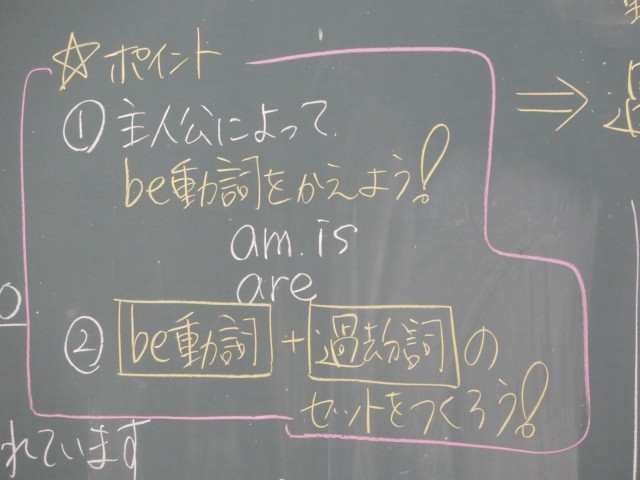 ☆ポイント
①主人公によって
be動詞をかえよう!
am. is
are
②be動詞+過去分詞の
セットをつくろう!
⇒過
れています